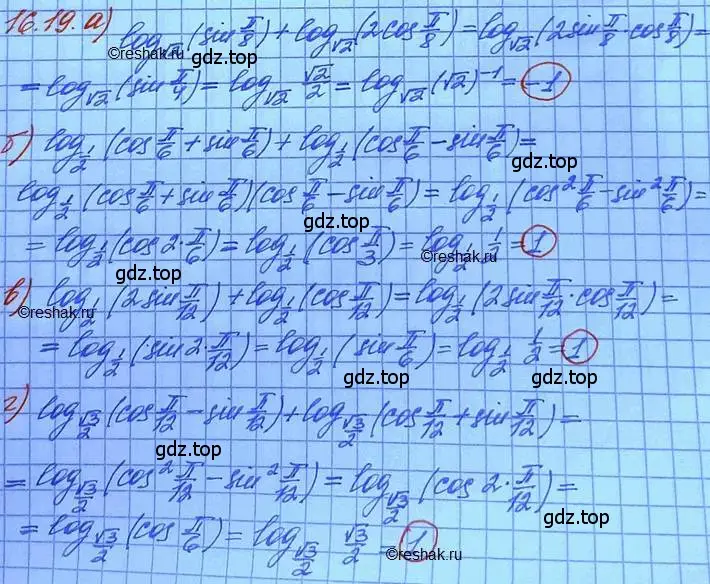 16.19. а) log_{√2}(sin π/8) + log_{√2}(2cos π/8) = log_{√2}(2sin π/8 · cos π/8) =
©reshak.ru
= log_{√2}(sin π/4) = log_{√2} √2/2 = log_{√2}(√2)^{-1} = -1
gdz.top
б) log_{1/2}(cos π/6 + sin π/6) + log_{1/2}(cos π/6 - sin π/6) =
log_{1/2}(cos π/6 + sin π/6)(cos π/6 - sin π/6) = log_{1/2}(cos² π/6 - sin² π/6) =
gdz.top
= log_{1/2}(cos 2·π/6) = log_{1/2}(cos π/3) = log_{1/2} 1/2 = 1
©reshak.ru
gdz.top
в) log_{1/2}(2sin π/12) + log_{1/2}(cos π/12) = log_{1/2}(2sin π/12 · cos π/12) =
©reshak.ru
= log_{1/2}(sin 2·π/12) = log_{1/2}(sin π/6) = log_{1/2} 1/2 = 1
gdz.top
gdz.top
г) log_{√3/2}(cos π/12 - sin π/12) + log_{√3/2}(cos π/12 + sin π/12) =
gdz.top
= log_{√3/2}(cos² π/12 - sin² π/12) = log_{√3/2}(cos 2·π/12) =
gdz.top
= log_{√3/2}(cos π/6) = log_{√3/2} √3/2 = 1
©reshak.ru
gdz.top